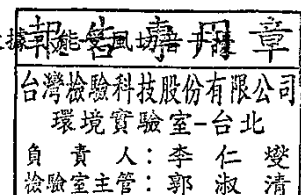 報告專用章
台灣檢驗科技股份有限公司
環境實驗室-台北
負責人：李仁燮
檢驗室主管：郭淑清